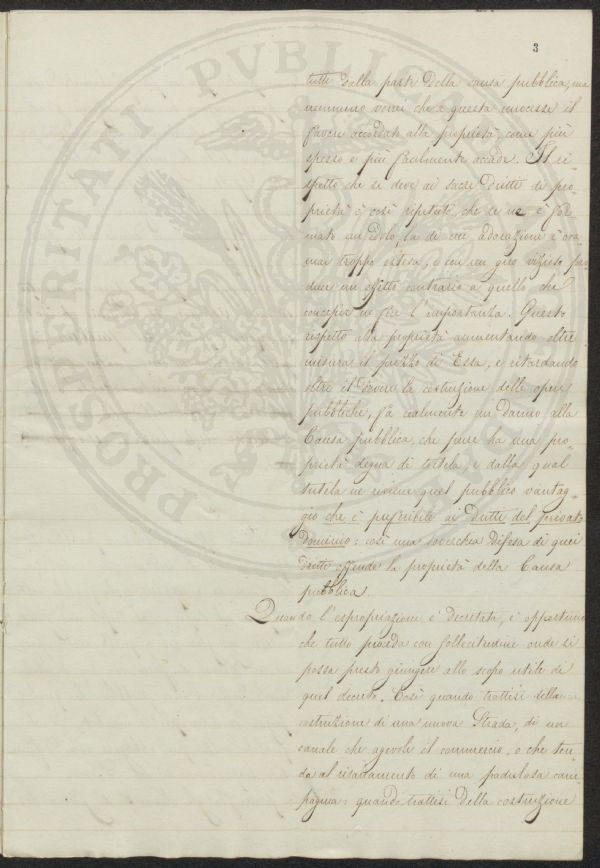 3
tutti dalla parte della causa pubblica, ma
nemmeno vorrei che a questa nuocesse il
favore accordato alla proprietà, come più
spesso e più facilmente accade. Il ri-
spetto che si deve ai sacri dritti di pro-
prietà è così ripetuto, che se ne è for-
mato un idolo, la di cui adorazione è ora-
mai troppo estesa, e con un giro vizioso pro-
duce un effetto contrario a quello che
l'importanza. Questo
rispetto alla proprietà aumentando oltre
misura il prezzo di Essa, e ritardando
oltre il dovere la costruzione delle opere
pubbliche, fa realmente un danno alla
Causa pubblica, che pure ha una pro-
prietà degna di tutela, e dalla qual
tutela ne risulta quel pubblico vantag-
gio che è preferibile ai dritti del privato
dominio: così una soverchia difesa di quei
dritti offende la proprietà della Causa
pubblica.
Quando l'espropriazione è decretata, è opportuno
che tutto proceda con sollecitudine onde si
possa presto giungere allo scopo utile di
quel decreto. Così quando trattisi della
costruzione di una nuova Strada, di un
canale che agevoli il commercio, o che ten-
da al risanamento di una padulosa cam-
pagna: quando trattisi della costruzione
PROSPERITATI PVBLICAE